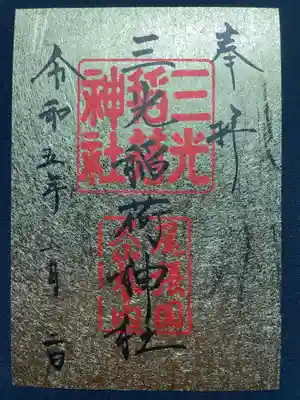 奉拝
三光稲荷神社
令和五年 一月 二日
三光
稲荷
神社
尾張国
犬山